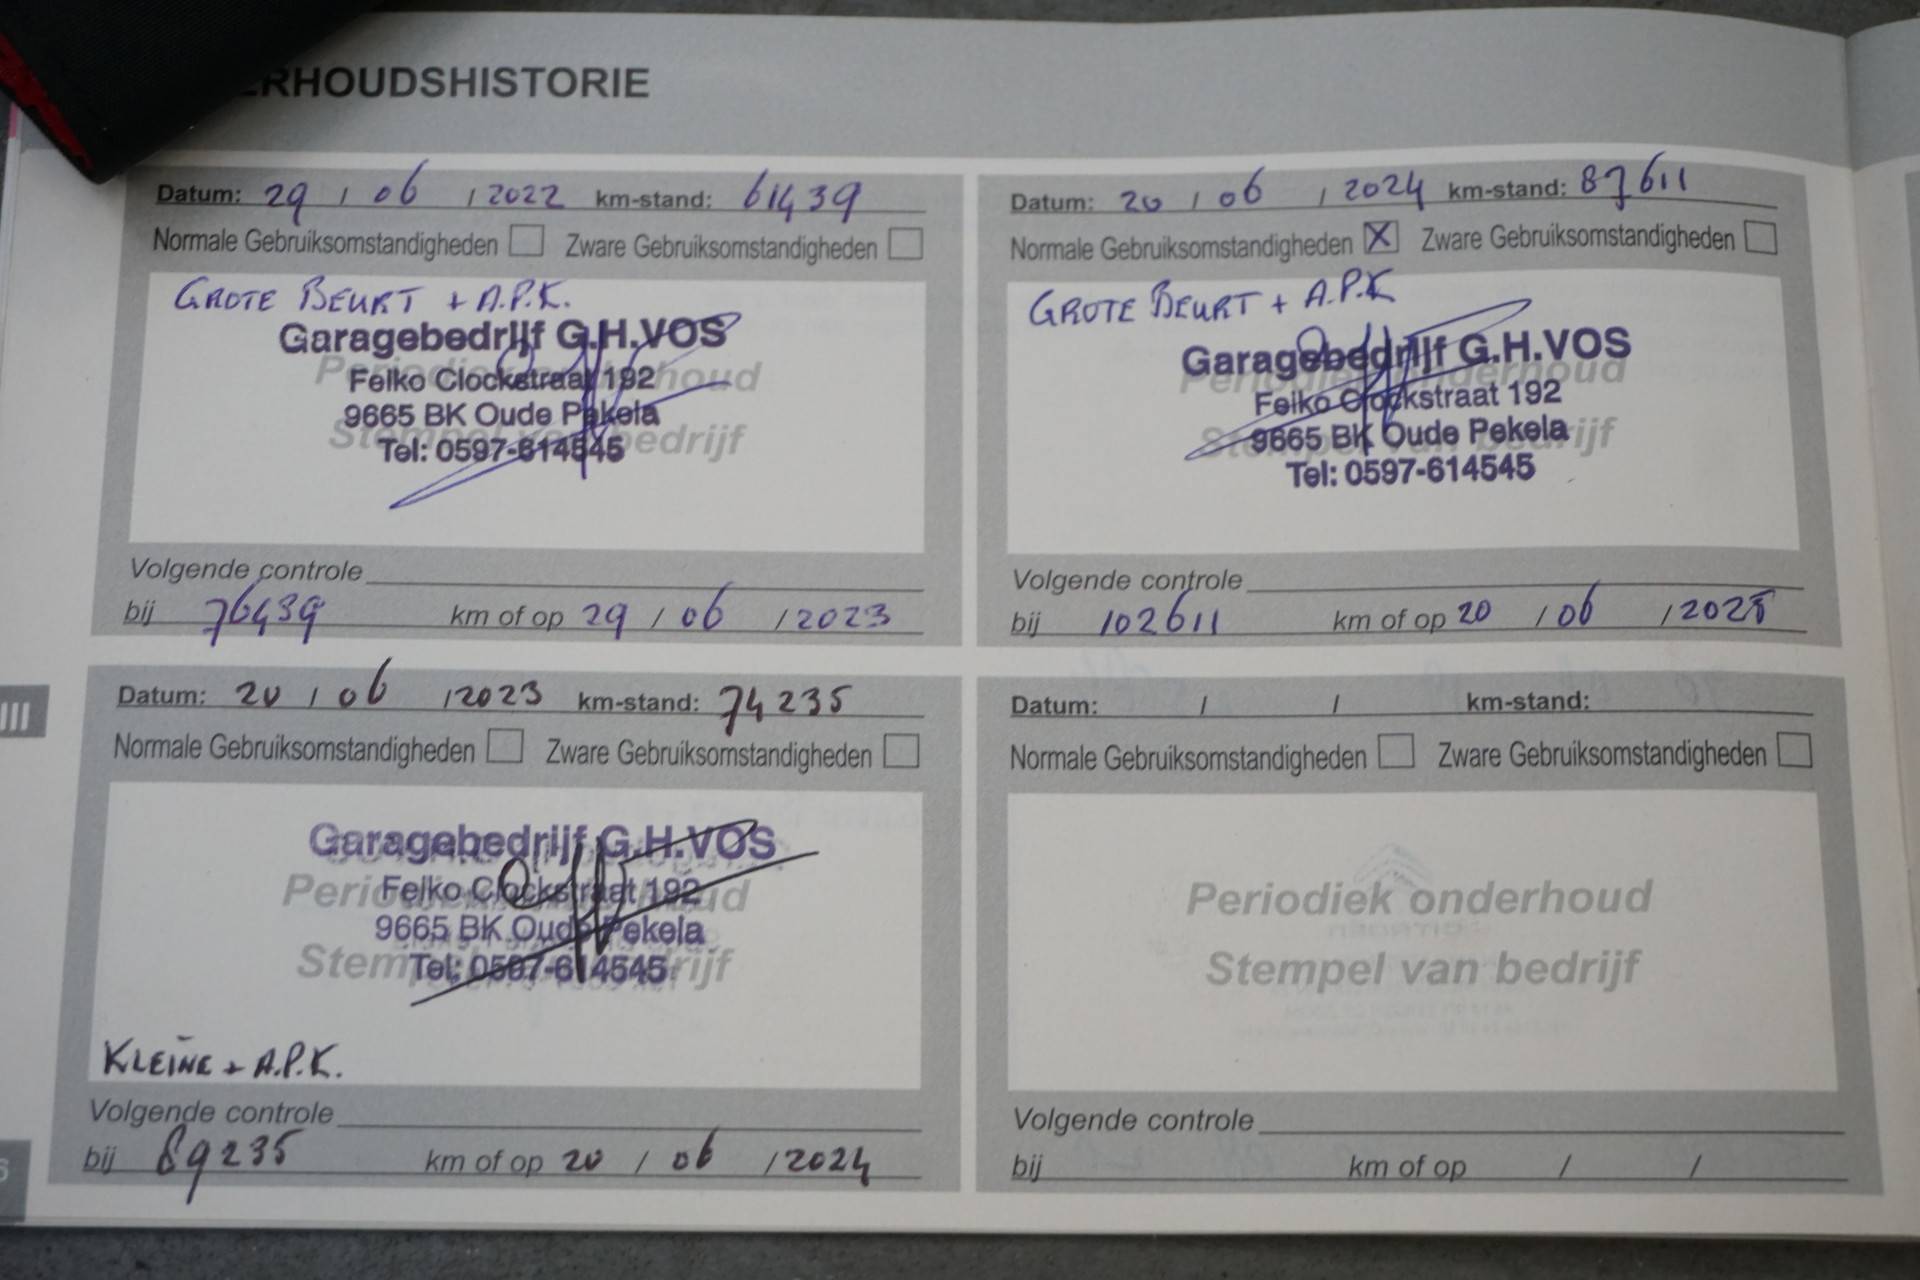 ERHOUDSHISTORIE
Datum: 29 / 06 / 2022 km-stand: 61439
Normale Gebruiksomstandigheden Zware Gebruiksomstandigheden
GROTE BEURT + A.P.K.
Garagebedrijf G.H.VOS
Feiko Clockstraat 192
9665 BK Oude Pekela
Tel: 0597-614545
Periodiek onderhoud
Stempel van bedrijf
Volgende controle
bij 76439 km of op 29 / 06 / 2023
Datum: 20 / 06 / 2023 km-stand: 74235
Normale Gebruiksomstandigheden Zware Gebruiksomstandigheden
Garagebedrijf G.H.VOS
Feiko Clockstraat 192
9665 BK Oude Pekela
Tel: 0597-614545
Periodiek onderhoud
Stempel van bedrijf
KLEINE + A.P.K.
Volgende controle
bij 89235 km of op 20 / 06 / 2024
Datum: 20 / 06 / 2024 km-stand: 87611
Normale Gebruiksomstandigheden X Zware Gebruiksomstandigheden
GROTE BEURT + A.P.K
Garagebedrijf G.H.VOS
Feiko Clockstraat 192
9665 BK Oude Pekela
Tel: 0597-614545
Periodiek onderhoud
Stempel van bedrijf
Volgende controle
bij 102611 km of op 20 / 06 / 2025
Datum: / / km-stand:
Normale Gebruiksomstandigheden Zware Gebruiksomstandigheden
Periodiek onderhoud
Stempel van bedrijf
Volgende controle
bij km of op / /
III